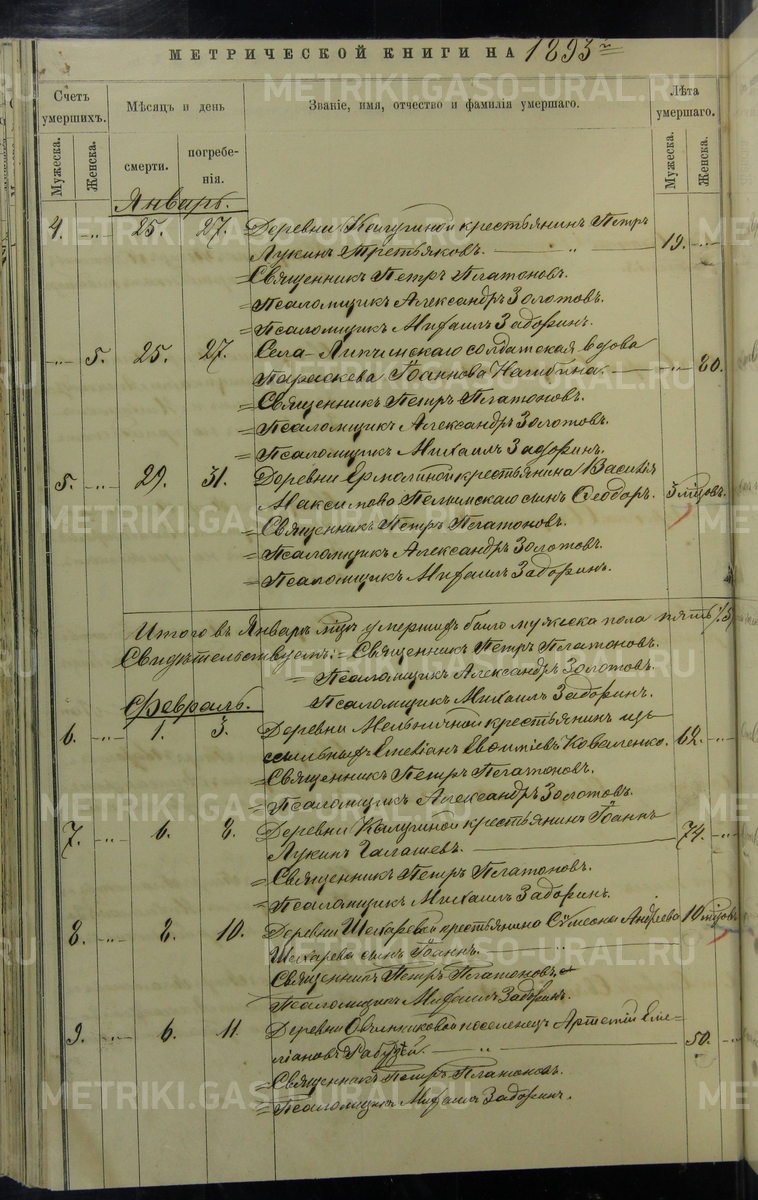 МЕТРИЧЕСКОЙ КНИГИ НА 1893 г.
Счетъ умершихъ. Мѣсяцъ и день Званіе, имя, отчество и фамилія умершаго. Лѣта умершаго.
Мужеска. Женска. смерти. погребенія. Мужеска. Женска.
Январь.
4. „ 25. 27. Деревни крестьянинъ Петръ
Лукинъ Третьяковъ. — „ — 19. „
= Священникъ Петръ Платоновъ.
= Псаломщикъ Александръ Золотовъ.
= Псаломщикъ Михаилъ Задоринъ.
„ 5. 25. 27. Села Липчинскаго солдатская вдова
Параскева Іоаннова Нагибина. — „ 80.
= Священникъ Петръ Платоновъ.
= Псаломщикъ Александръ Золотовъ.
= Псаломщикъ Михаилъ Задоринъ.
5. „ 29. 31. Деревни Ермолиной крестьянина Василія
Максимова сынъ Ѳеодоръ. 5 мѣцовъ.
= Священникъ Петръ Платоновъ.
= Псаломщикъ Александръ Золотовъ.
= Псаломщикъ Михаилъ Задоринъ.
Итого въ Январѣ мѣцѣ умершихъ было мужеска пола пять /5/
Свидѣтельствуемъ: = Священникъ Петръ Платоновъ.
= Псаломщикъ Александръ Золотовъ.
Псаломщикъ Михаилъ Задоринъ.
Февраль.
6. „ 1. 3. Деревни Мельничной крестьянинъ изъ
ссыльныхъ Емеліанъ Евѳиміевъ Коваленко. 62. „
= Священникъ Петръ Платоновъ.
= Псаломщикъ Александръ Золотовъ.
7. „ 6. 8. Деревни Калугиной крестьянинъ Іоаннъ
Лукинъ Галашевъ. — 74. „
= Священникъ Петръ Платоновъ.
= Псаломщикъ Михаилъ Задоринъ.
8. „ 8. 10. Деревни крестьянина Сѵмеона Андреева 10 мѣцовъ
сынъ Іоаннъ. „
Священникъ Петръ Платоновъ.
Псаломщикъ Михаилъ Задоринъ.
9. „ 6. 11. Деревни Овчинниковой поселенецъ Артемій Еме-
ліановъ — „ — 50. „
= Священникъ Петръ Платоновъ.
= Псаломщикъ Михаилъ Задоринъ.
METRIKI.GASO-URAL.RU